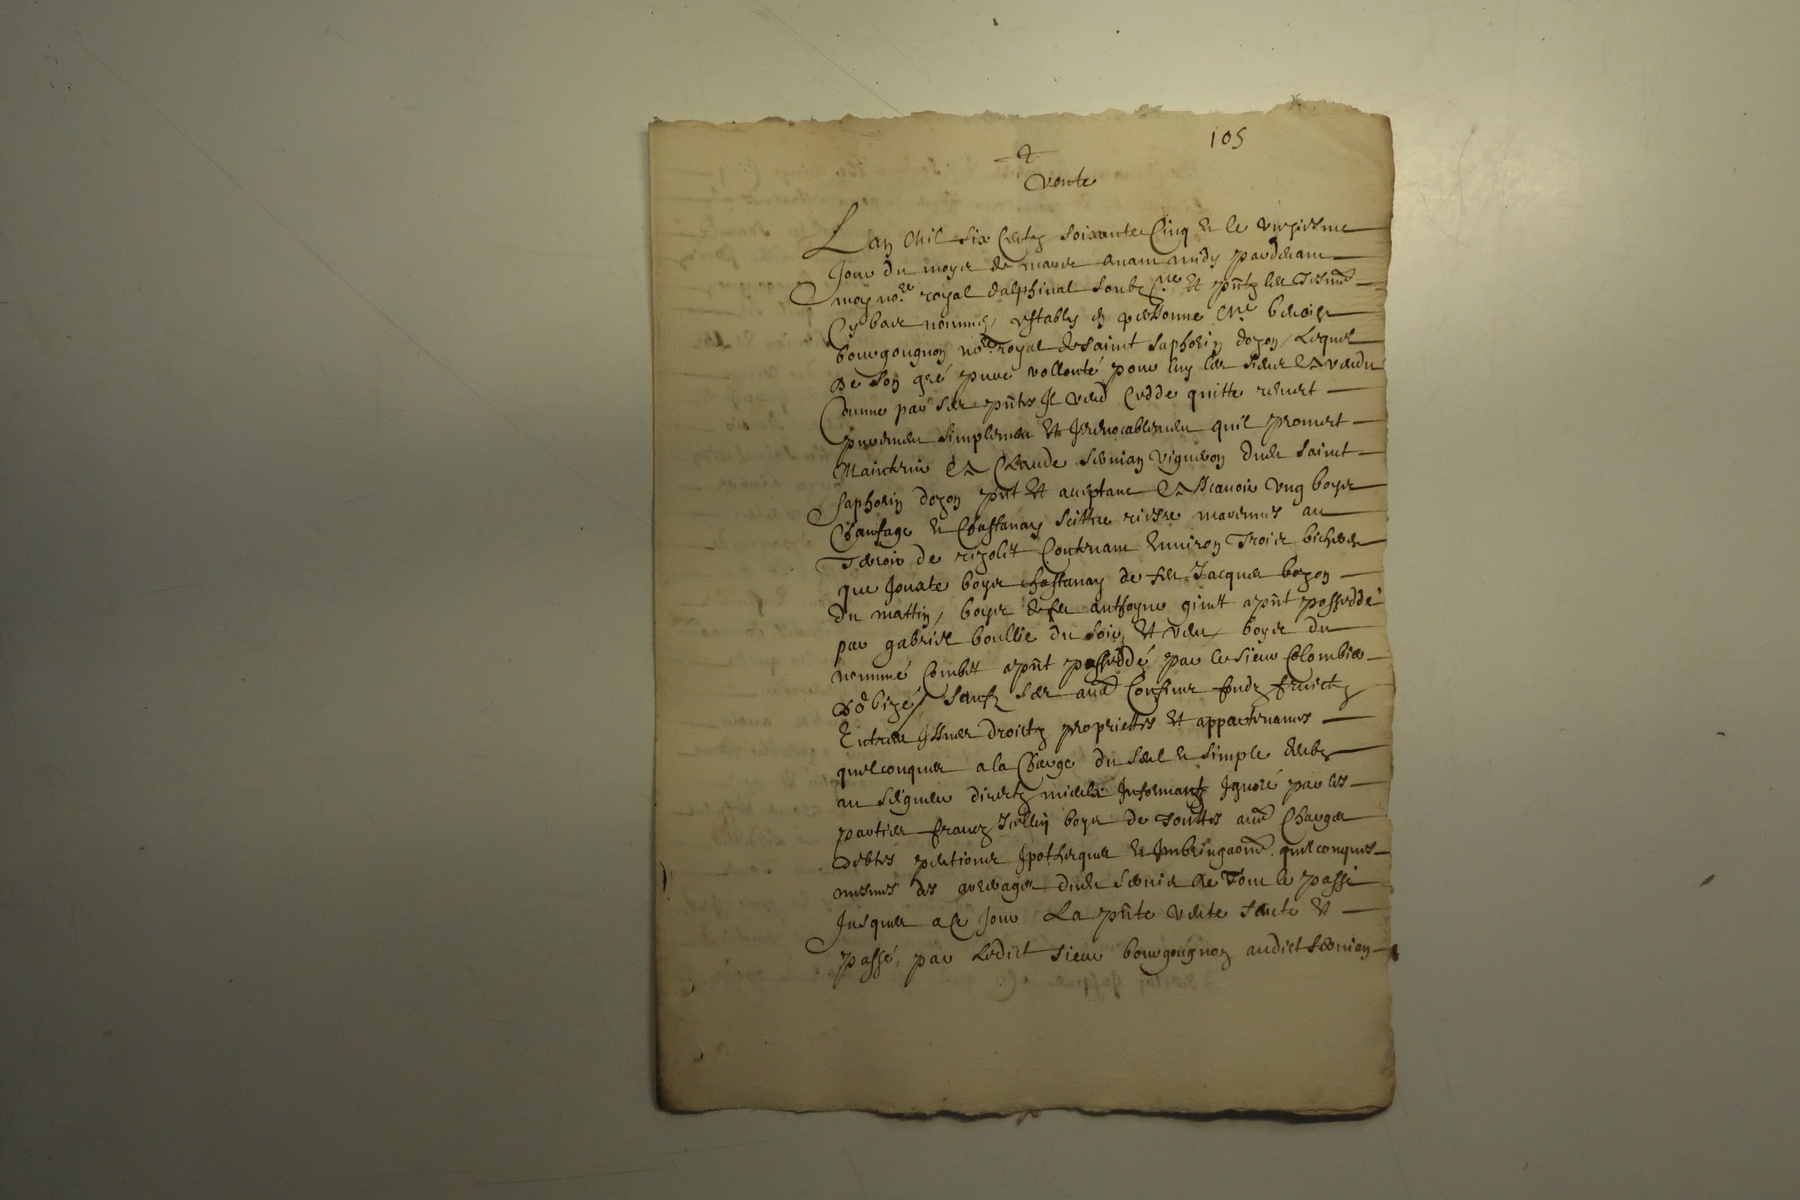 105
Vente
Lan Mil six Centz soixante Cinq et le vingiesme
Jour du moys de mars avant midy pardevant
moy no.re royal dalphinal soubz.ne et pñtz les tesm.
Cy bas nommés, estably en personne M.e benoist
bourgougnon no.re royal de saint saphorin dozon, Lequel
de son gré pure vollonté pour luy les siens a vendu
Comme par ses pñtes Il vend Cedde quitte remet
purement simplement et Irrevocablement quil promet
Maintenir a Claude servian vigneron dudt saint
saphorin dozon pñt et acceptant a scavoir ung boys
Chaufage et Chastanay scittué riesre marennes au
Terroir de rigolet Contenant environ trois bicherées
que Jouxte boys chastanay de feu Jacques bozon
du mattin, boys de feu anthoyne ginet apñt posseddé
par gabriel boullie du soir, et vent, boys du
nommé Combet apñt posseddé par le sieur Colombier
de bize, saufz ses Confins fondz fruictz
Entrées Issues droictz propriettés et appartenances
quelconques a la Charge du seul et simple
au seigneur directz Informantz Ignoré par les
parties francz boys de touttes Charges
debtes pentions Ipothecques et quelconques
mesmes des arrerages dudt servis de tout le passé
Jusques a Ce Jour La pñte vente faicte et
passé, par Ledict sieur bourgougnon audict servian